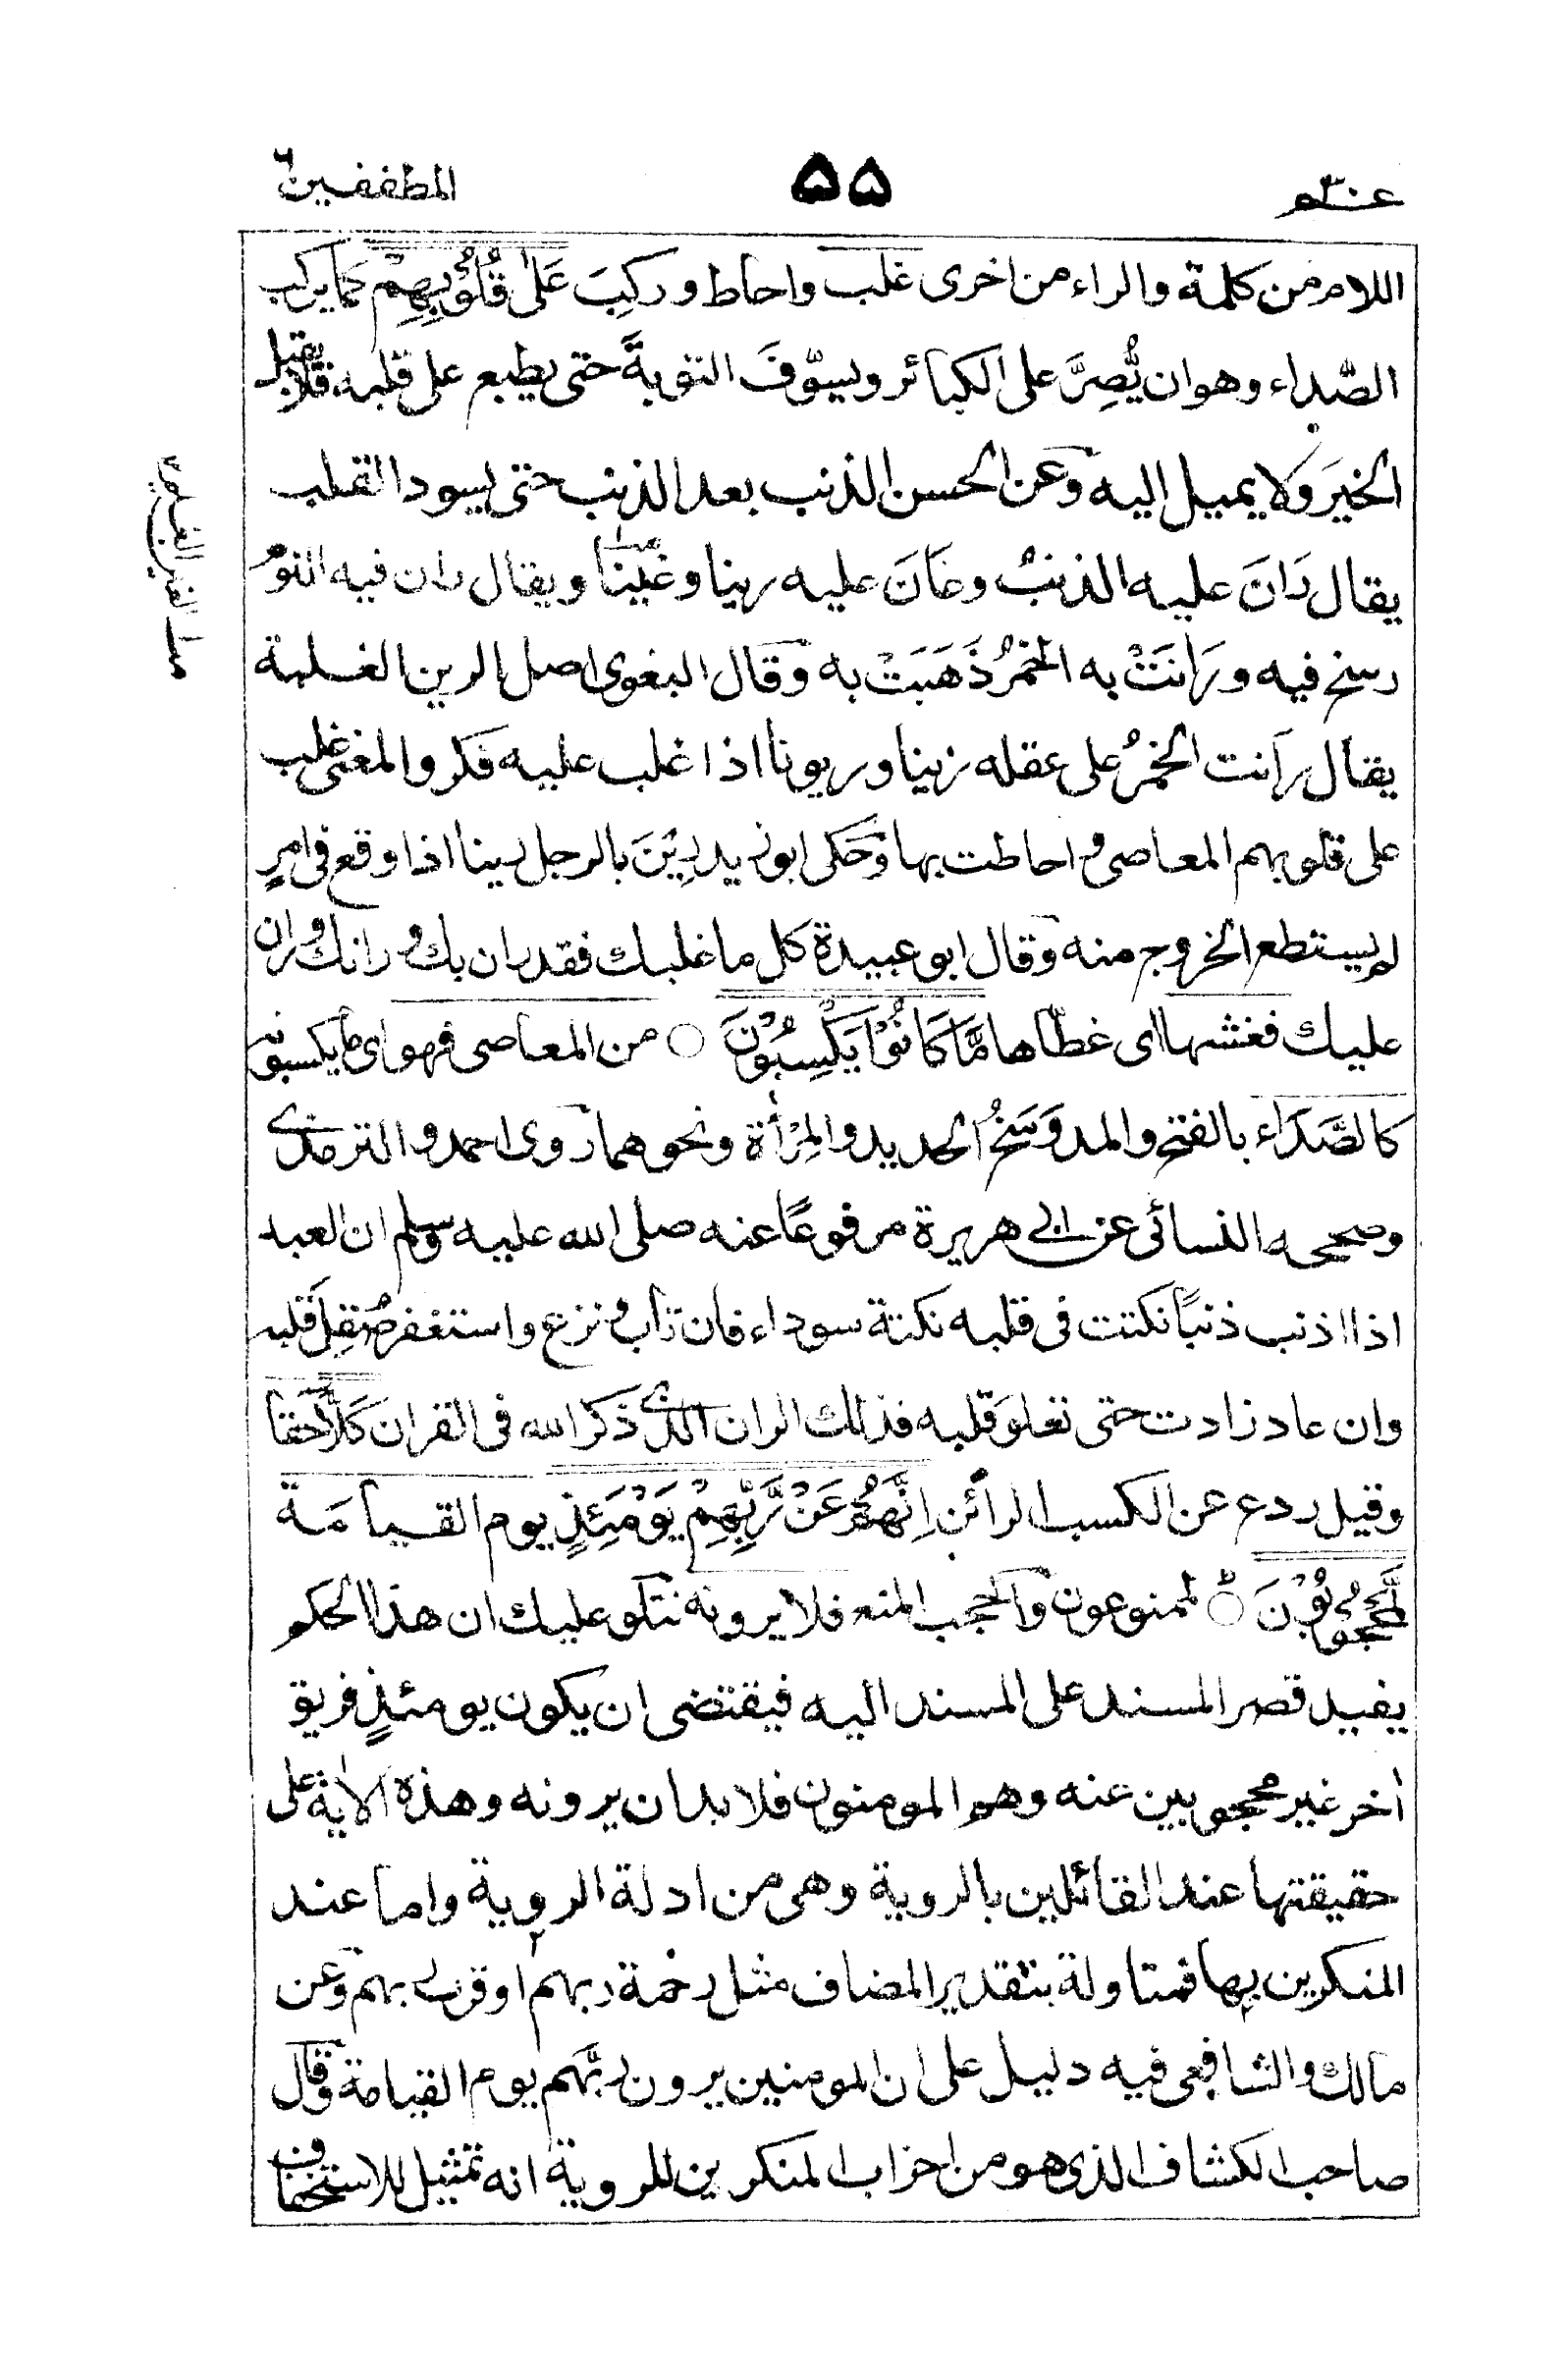 عـــــم ٣٠
۵۵
المطففين
اللام من كلمة والراء من اخرى غلب واحاط و ركِبَ عَلٰى قُلُوْبِهِمْ كما يركب
الصّداء وهو ان يُّصِرَّ على الكبائر ويسوّفَ التوبةَ حتى يطبع على قلبه فلا يقبل
الخيرَ ولا يميل اليه وعن الحسن الذنب بعد الذنب حتى يسود القلب
يقال رَانَ عليه الذنبُ وغَانَ عليه رينا وغَيْنًا ويقال ران فيه النومُ
رسخ فيه ورَانَتْ به الخمرُ ذَهَبَتْ به وقال البغوى اصل الرين الغلبة
يقال رآنت الخمرُ على عقله رينا و ريونا اذا غلب عليه فكر والمعنى غلب
على قلوبهم المعاصى و احاطت بها وحكى ابو زيد رِيْنَ بالرجل رينا اذا وقع فى امرٍ
لم يستطع الخروج منه وقال ابو عبيدة كل ما غلبك فقد ران بك و رانك و ران
عليك فغشها اى غطاها مَّا كَانُوْا يَكْسِبُوْنَ ○ من المعاصى فهو اى ما يكسبونه
كالصَّدَاء بالفتح والمد وَسَخُ الحديد والمِرْأة ونحوهما روى احمد والترمذى
وصححه النسائى عن ابى هريرة مرفوعًا عنه صلى الله عليه وسلم ان العبد
اذا اذنب ذنبًا نكتت فى قلبه نكتة سوداء فان تاب و نزع واستغفر صُقِلَ قلبه
وان عاد زادت حتى تعلوَ قلبه فذلك الران الذى ذكر الله فى القران كَلَّا حقا
وقيل ردع عن الكسب الرائن اِنَّهُمْ عَنْ رَّبِّهِمْ يَوْمَئِذٍ يوم القيامة
لَّمَحْجُوْبُوْنَ ○ لممنوعون والحجب المنع فلا يرونه نتكو عليك ان هذا الحكم
يفيد قصر المسند على المسند اليه فيقتضى ان يكون يومئذٍ فريق
اخر غير محجوبين عنه وهم المومنون فلا بد ان يرونه وهذه الاية على
حقيقتها عند القائلين بالروية وهى من ادلة الروية واما عند
المنكرين بها فمتاولة بتقدير المضاف مثل رحمة ربهم او قرب ربهم وعن
مالك والشافعى فيه دليل على ان المومنين يرون ربَّهم يوم القيامة وقال
صاحب الكشاف الذى هو من احزاب المنكرين للروية انه تمثيل للاستخفاف